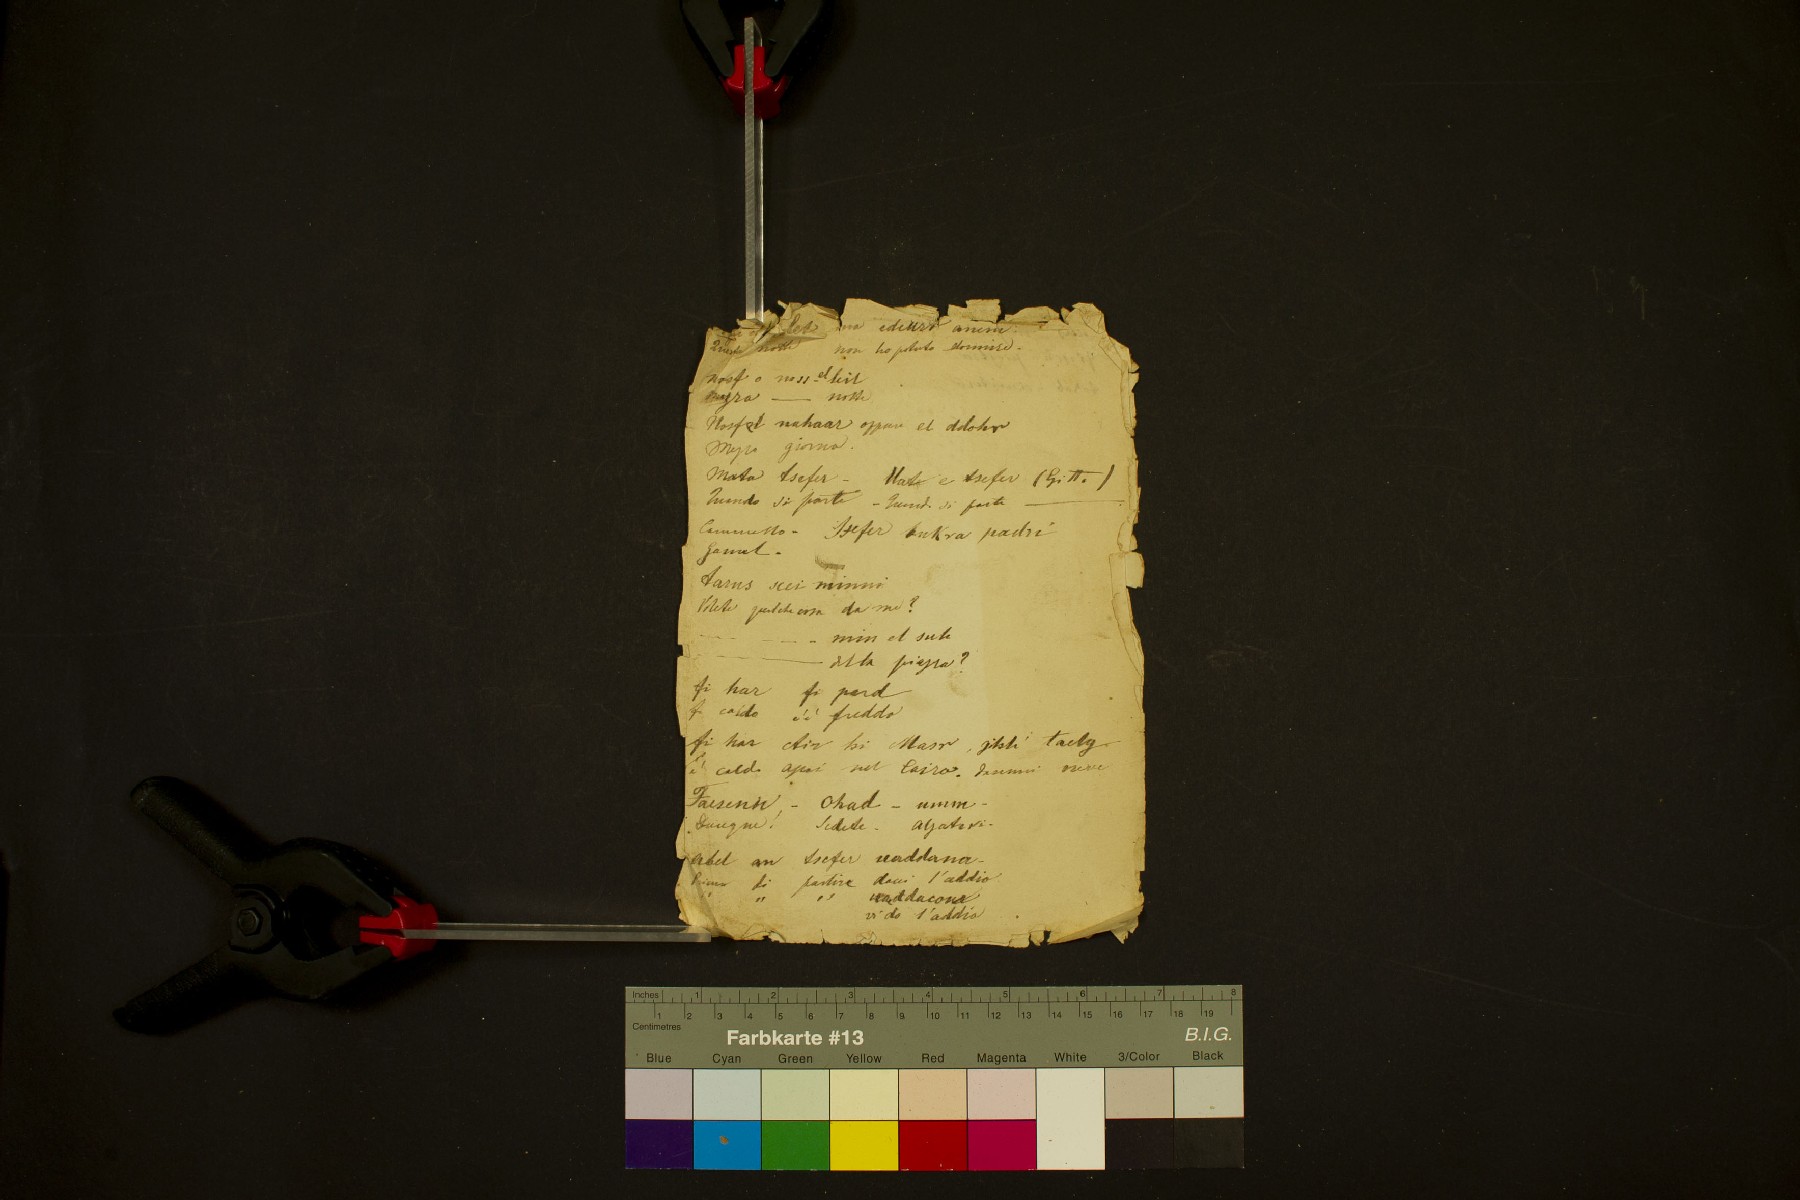 ma edeurt anem
Questa notte non ho potuto dormire.
Nosf o noss-el leil
Mezza — notte
Nosf el nahaar oppure el ddohr
Mezzo giorno.
Mata tsefer - Mate e tsefer (Gitt.)
Quando si parte - Quando si parte —
Cammello - Tsefer bukra padri
Gamal -
tarus scei minni
Volete qualche cosa da me?
- - - min el suk
— della piazza?
fi har fi perd
fa caldo è freddo
fi har ktir bi Masr, jibli taelg
è caldo assai nel Cairo. dammi neve
Sedete.
abel an tsefer uaddana-
Prima di partire dacci l'addio
" " " uaddacona
vi do l'addio
Inches 1 2 3 4 5 6 7 8
Centimetres 1 2 3 4 5 6 7 8 9 10 11 12 13 14 15 16 17 18 19
Farbkarte #13 B.I.G.
Blue Cyan Green Yellow Red Magenta White 3/Color Black